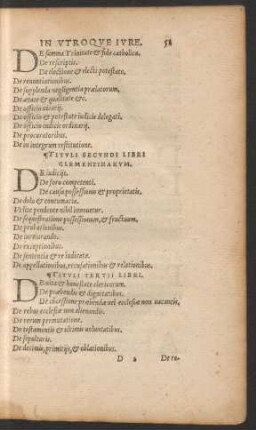 IN VTROQVE IVRE. 58
DE summa Trinitate & fide catholica.
De rescriptis.
De electione & electi potestate.
De renuntiationibus.
De supplenda negligentia prælatorum.
De ætate & qualitate &c.
De officio vicarij.
De officio & potestate iudicis delegati.
De officio iudicis ordinarij.
De procuratoribus.
De in integrum restitutione.
¶TITVLI SECVNDI LIBRI
CLEMENTINARVM.
DE iudicijs.
De foro competenti.
De causa possessionis & proprietatis.
De dolo & contumacia.
Vt lite pendente nihil innouetur.
De sequestratione possessionum, & fructuum.
De probationibus.
De iureiurando.
De exceptionibus.
De sententia & re iudicata.
De appellationibus, recusationibus & relationibus.
¶TITVLI TERTII LIBRI.
DE vita & honestate clericorum.
De præbendis & dignitatibus.
De concessione præbendæ vel ecclesiæ non vacantis,
De rebus ecclesiæ non alienandis.
De rerum permutatione.
De testamentis & vltimis voluntatibus.
De sepulturis.
De decimis, primitijs, & oblationibus.
D 2 De re-